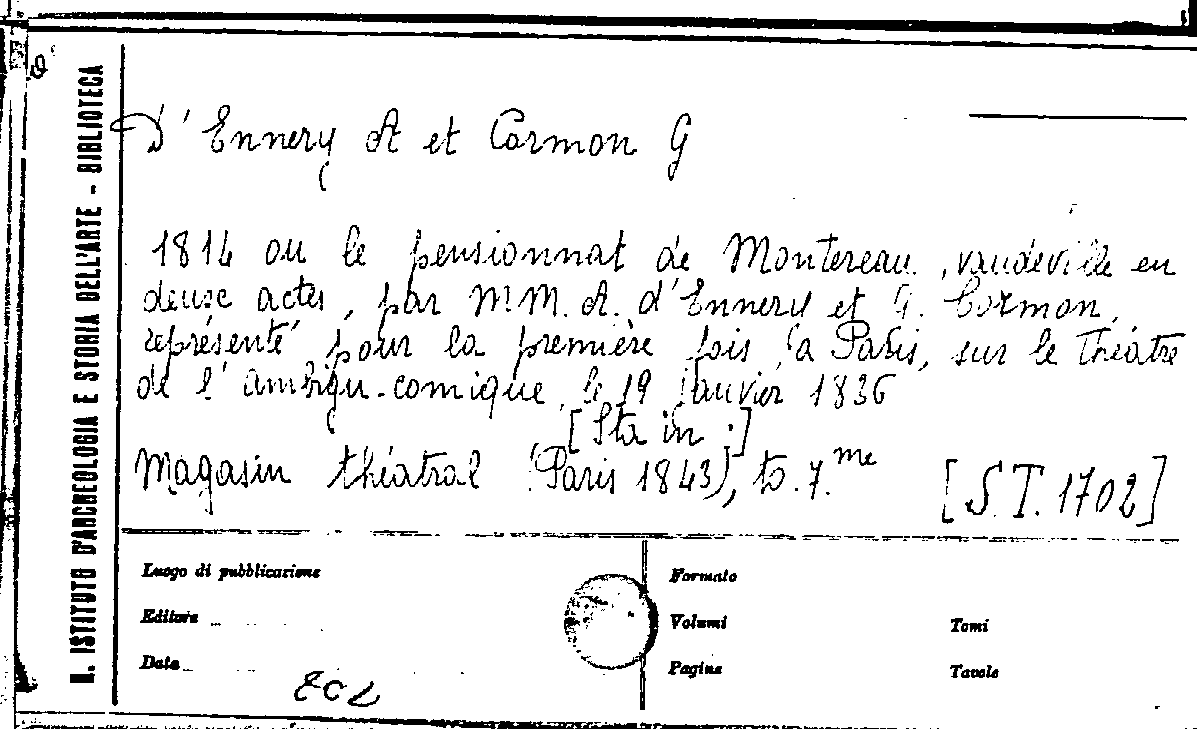 R. ISTITUTO D'ARCHEOLOGIA E STORIA DELL'ARTE - BIBLIOTECA
D'Ennery A et Cormon G
1814 ou le pensionnat de Montereau, vaudeville en
deuxe actes, par M.M. A. d'Ennery et G. Cormon,
représenté pour la première fois à Paris, sur le théâtre
de l'ambigu-comique, le 19 Janvier 1836
[Sta in :]
Magasin théatral (Paris 1843), to. 7.me [S.T. 1702]
Luogo di pubblicazione
Editore
Data
Formato
Volumi Tomi
Pagine Tavole